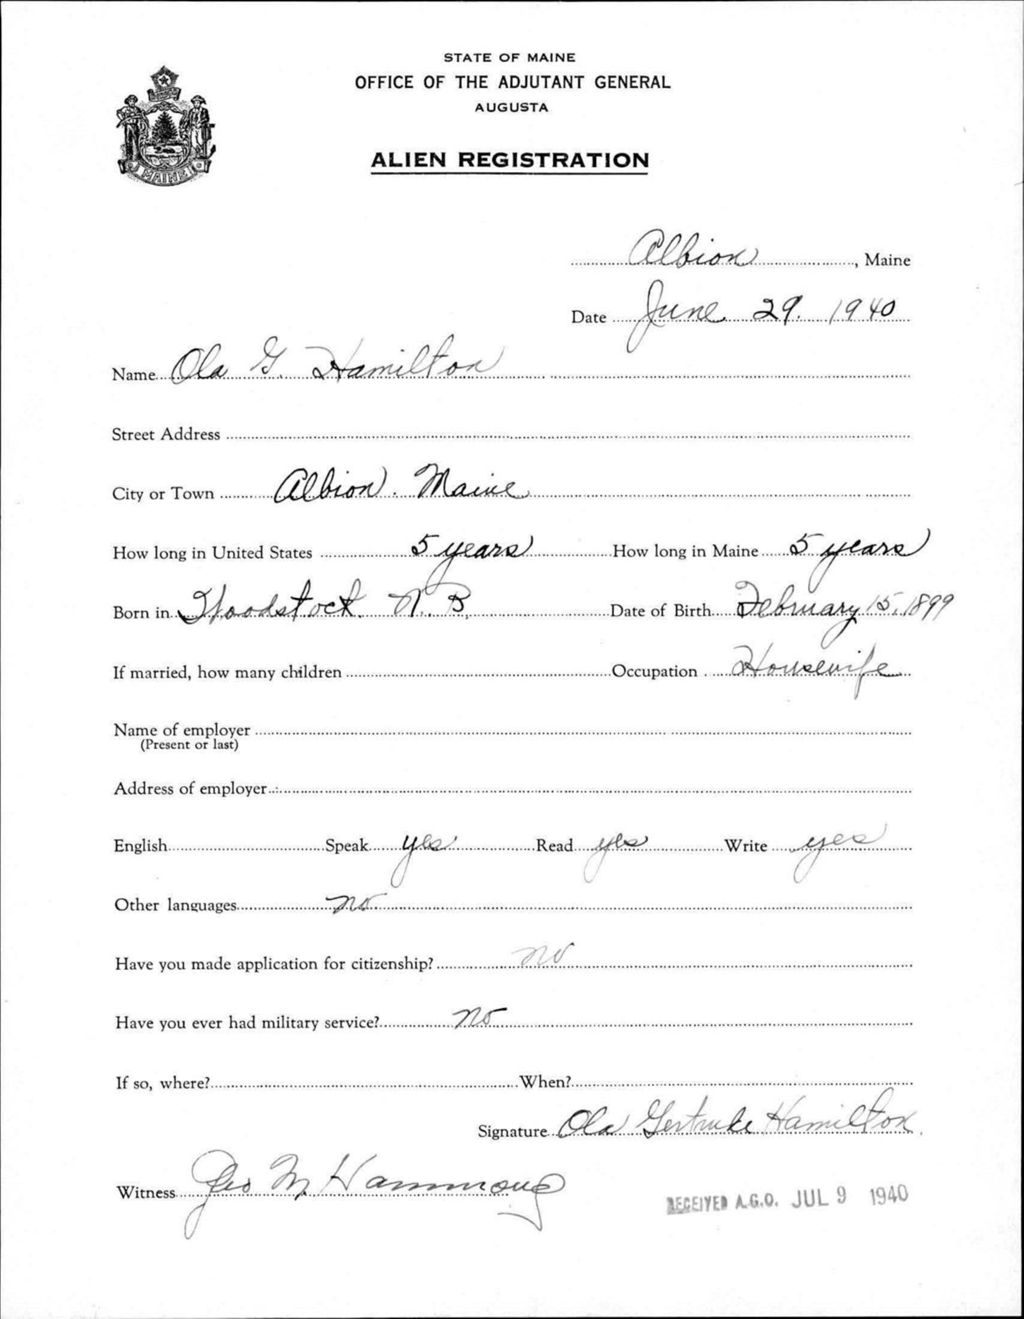 STATE OF MAINE
OFFICE OF THE ADJUTANT GENERAL
AUGUSTA
ALIEN REGISTRATION
MAINE
Albion, Maine
Date June 29. 1940
Name Ola G. Hamilton
Street Address
City or Town Albion. Maine
How long in United States 5 years How long in Maine 5 years
Born in Woodstock N. B. Date of Birth February 15, 1899
If married, how many children Occupation Housewife
Name of employer
(Present or last)
Address of employer
English Speak yes Read yes Write yes
Other languages no
Have you made application for citizenship? no
Have you ever had military service? no
If so, where? When?
Signature Ola Gertrude Hamilton
Witness Geo M
RECEIVED A.G.O. JUL 9 1940